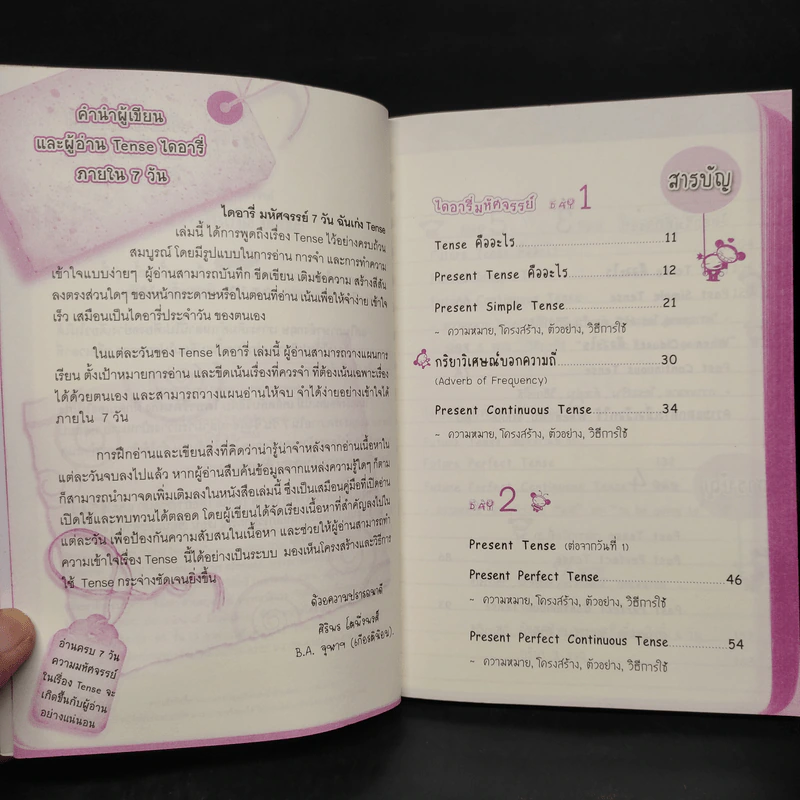 คำนำผู้เขียน
และผู้อ่าน Tense ไดอารี่
ภายใน 7 วัน
ไดอารี่ มหัศจรรย์ 7 วัน ฉันเก่ง Tense
เล่มนี้ ได้การพูดถึงเรื่อง Tense ไว้อย่างครบถ้วน
สมบูรณ์ โดยมีรูปแบบในการอ่าน การจำ และการทำความ
เข้าใจแบบง่ายๆ ผู้อ่านสามารถบันทึก ขีดเขียน เติมข้อความ สร้างสีสัน
ลงตรงส่วนใดๆ ของหน้ากระดาษหรือในตอนที่อ่าน เน้นเพื่อให้จำง่าย เข้าใจ
เร็ว เสมือนเป็นไดอารี่ประจำวัน ของตนเอง
ในแต่ละวันของ Tense ไดอารี่ เล่มนี้ ผู้อ่านสามารถวางแผนการ
เรียน ตั้งเป้าหมายการอ่าน และขีดเน้นเรื่องที่ควรจำ ที่ต้องเน้นเฉพาะเรื่อง
ได้ด้วยตนเอง และสามารถวางแผนอ่านให้จบ จำได้ง่ายอย่างเข้าใจได้
ภายใน 7 วัน
การฝึกอ่านและเขียนสิ่งที่คิดว่าน่ารู้น่าจำหลังจากอ่านเนื้อหาใน
แต่ละวันจบลงไปแล้ว หากผู้อ่านสืบค้นข้อมูลจากแหล่งความรู้ใดๆ ก็ตาม
ก็สามารถนำมาจดเพิ่มเติมลงในหนังสือเล่มนี้ ซึ่งเป็นเสมือนคู่มือที่เปิดอ่าน
เปิดใช้และทบทวนได้ตลอด โดยผู้เขียนได้จัดเรียงเนื้อหาที่สำคัญลงไปใน
แต่ละวัน เพื่อป้องกันความสับสนในเนื้อหา และช่วยให้ผู้อ่านสามารถทำ
ความเข้าใจเรื่อง Tense นี้ได้อย่างเป็นระบบ มองเห็นโครงสร้างและวิธีการ
ใช้ Tense กระจ่างชัดเจนยิ่งขึ้น
ด้วยความปรารถนาดี
ศิริพร
B.A. จุฬาฯ (เกียรตินิยม).
อ่านครบ 7 วัน
ความมหัศจรรย์
ในเรื่อง Tense จะ
เกิดขึ้นกับผู้อ่าน
อย่างแน่นอน
สารบัญ
ไดอารี่มหัศจรรย์ DAY 1
Tense คืออะไร 11
Present Tense คืออะไร 12
Present Simple Tense 21
- ความหมาย, โครงสร้าง, ตัวอย่าง, วิธีการใช้
กริยาวิเศษณ์บอกความถี่ 30
(Adverb of Frequency)
Present Continuous Tense 34
- ความหมาย, โครงสร้าง, ตัวอย่าง, วิธีการใช้
DAY 2
Present Tense (ต่อจากวันที่ 1)
Present Perfect Tense 46
- ความหมาย, โครงสร้าง, ตัวอย่าง, วิธีการใช้
Present Perfect Continuous Tense 54
- ความหมาย, โครงสร้าง, ตัวอย่าง, วิธีการใช้